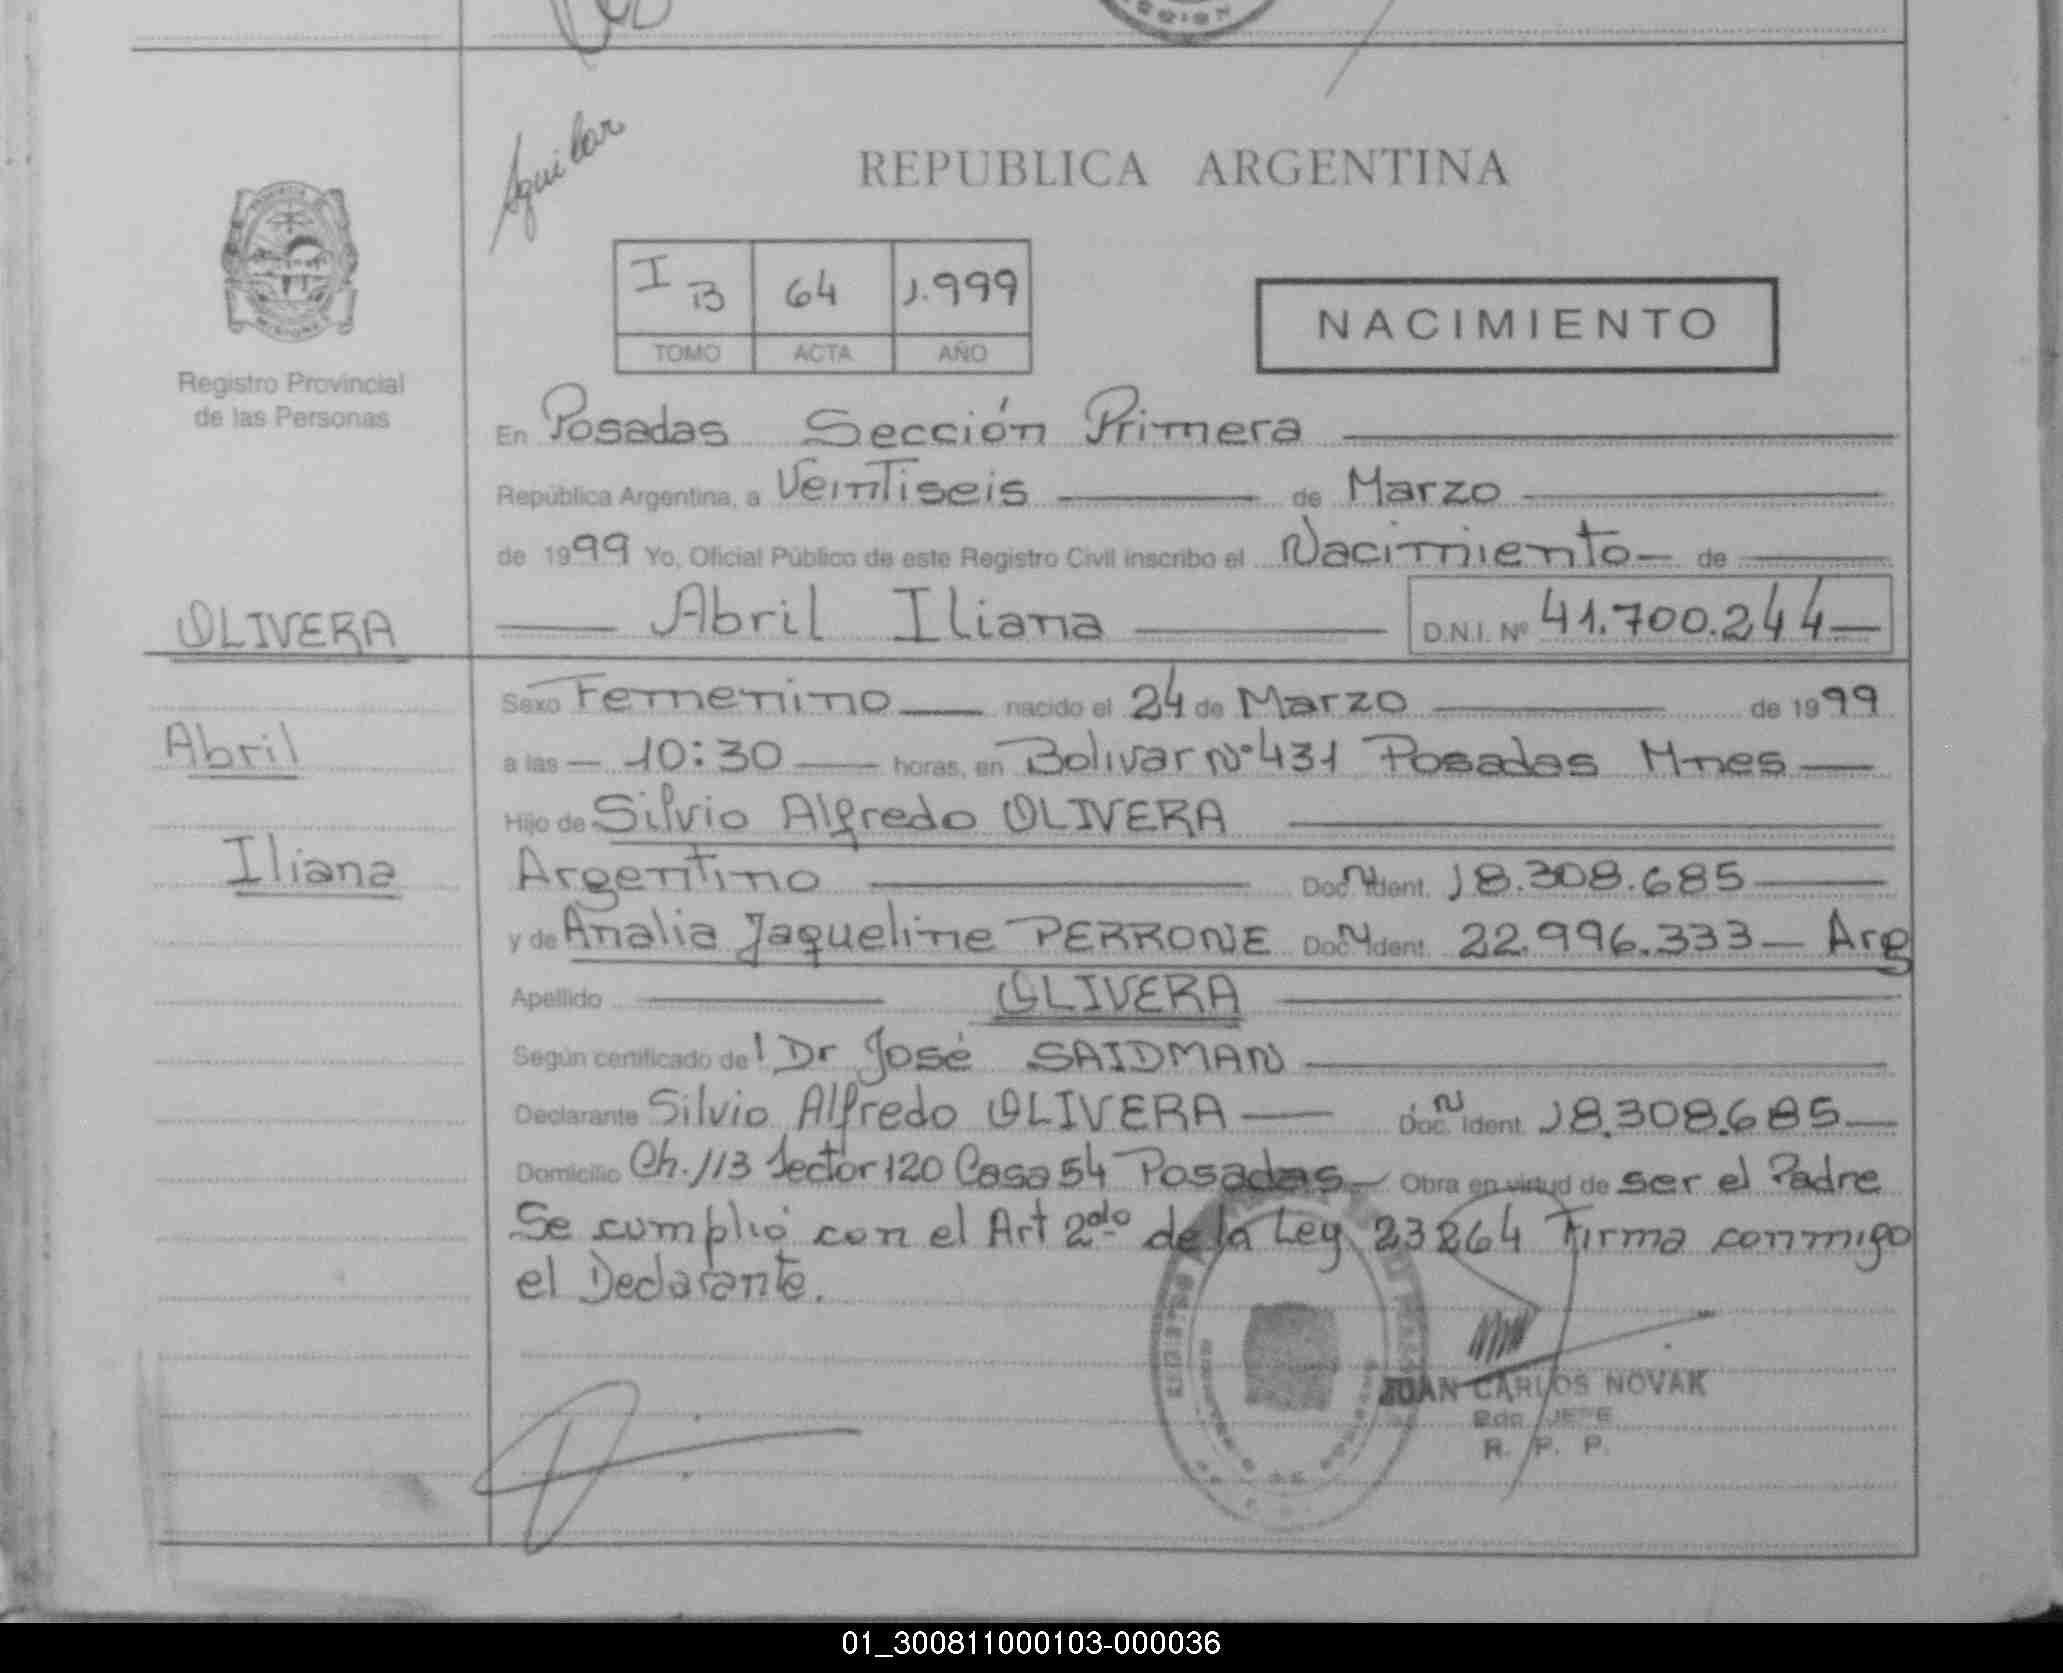 Aguilar
REPUBLICA ARGENTINA
I B 64 1.999
TOMO ACTA AÑO
NACIMIENTO
Registro Provincial
de las Personas
En Posadas Sección Primera
República Argentina, a Veintiseis de Marzo
de 1999 Yo, Oficial Público de este Registro Civil inscribo el Nacimiento de
OLIVERA
Abril Iliana D.N.I. Nº 41.700.244
Sexo Femenino nacido el 24 de Marzo de 1999
Abril
a las 10:30 horas, en Bolivar Nº 431 Posadas Mnes
Hijo de Silvio Alfredo OLIVERA
Iliana
Argentino Doc. N Ident. 18.308.685
y de Analia Jaqueline PERRONE Doc. N Ident. 22.996.333 Arg
Apellido OLIVERA
Según certificado de Dr José SAIDMAN
Declarante Silvio Alfredo OLIVERA Doc. N Ident. 18.308.685
Domicilio Ch. 113 Sector 120 Casa 54 Posadas Obra en virtud de ser el Padre
Se cumplió con el Art 2do de la Ley 23264 Firma conmigo
el Declarante.
JUAN CARLOS NOVAK
2do. JEFE
R. P. P.
01_300811000103-000036